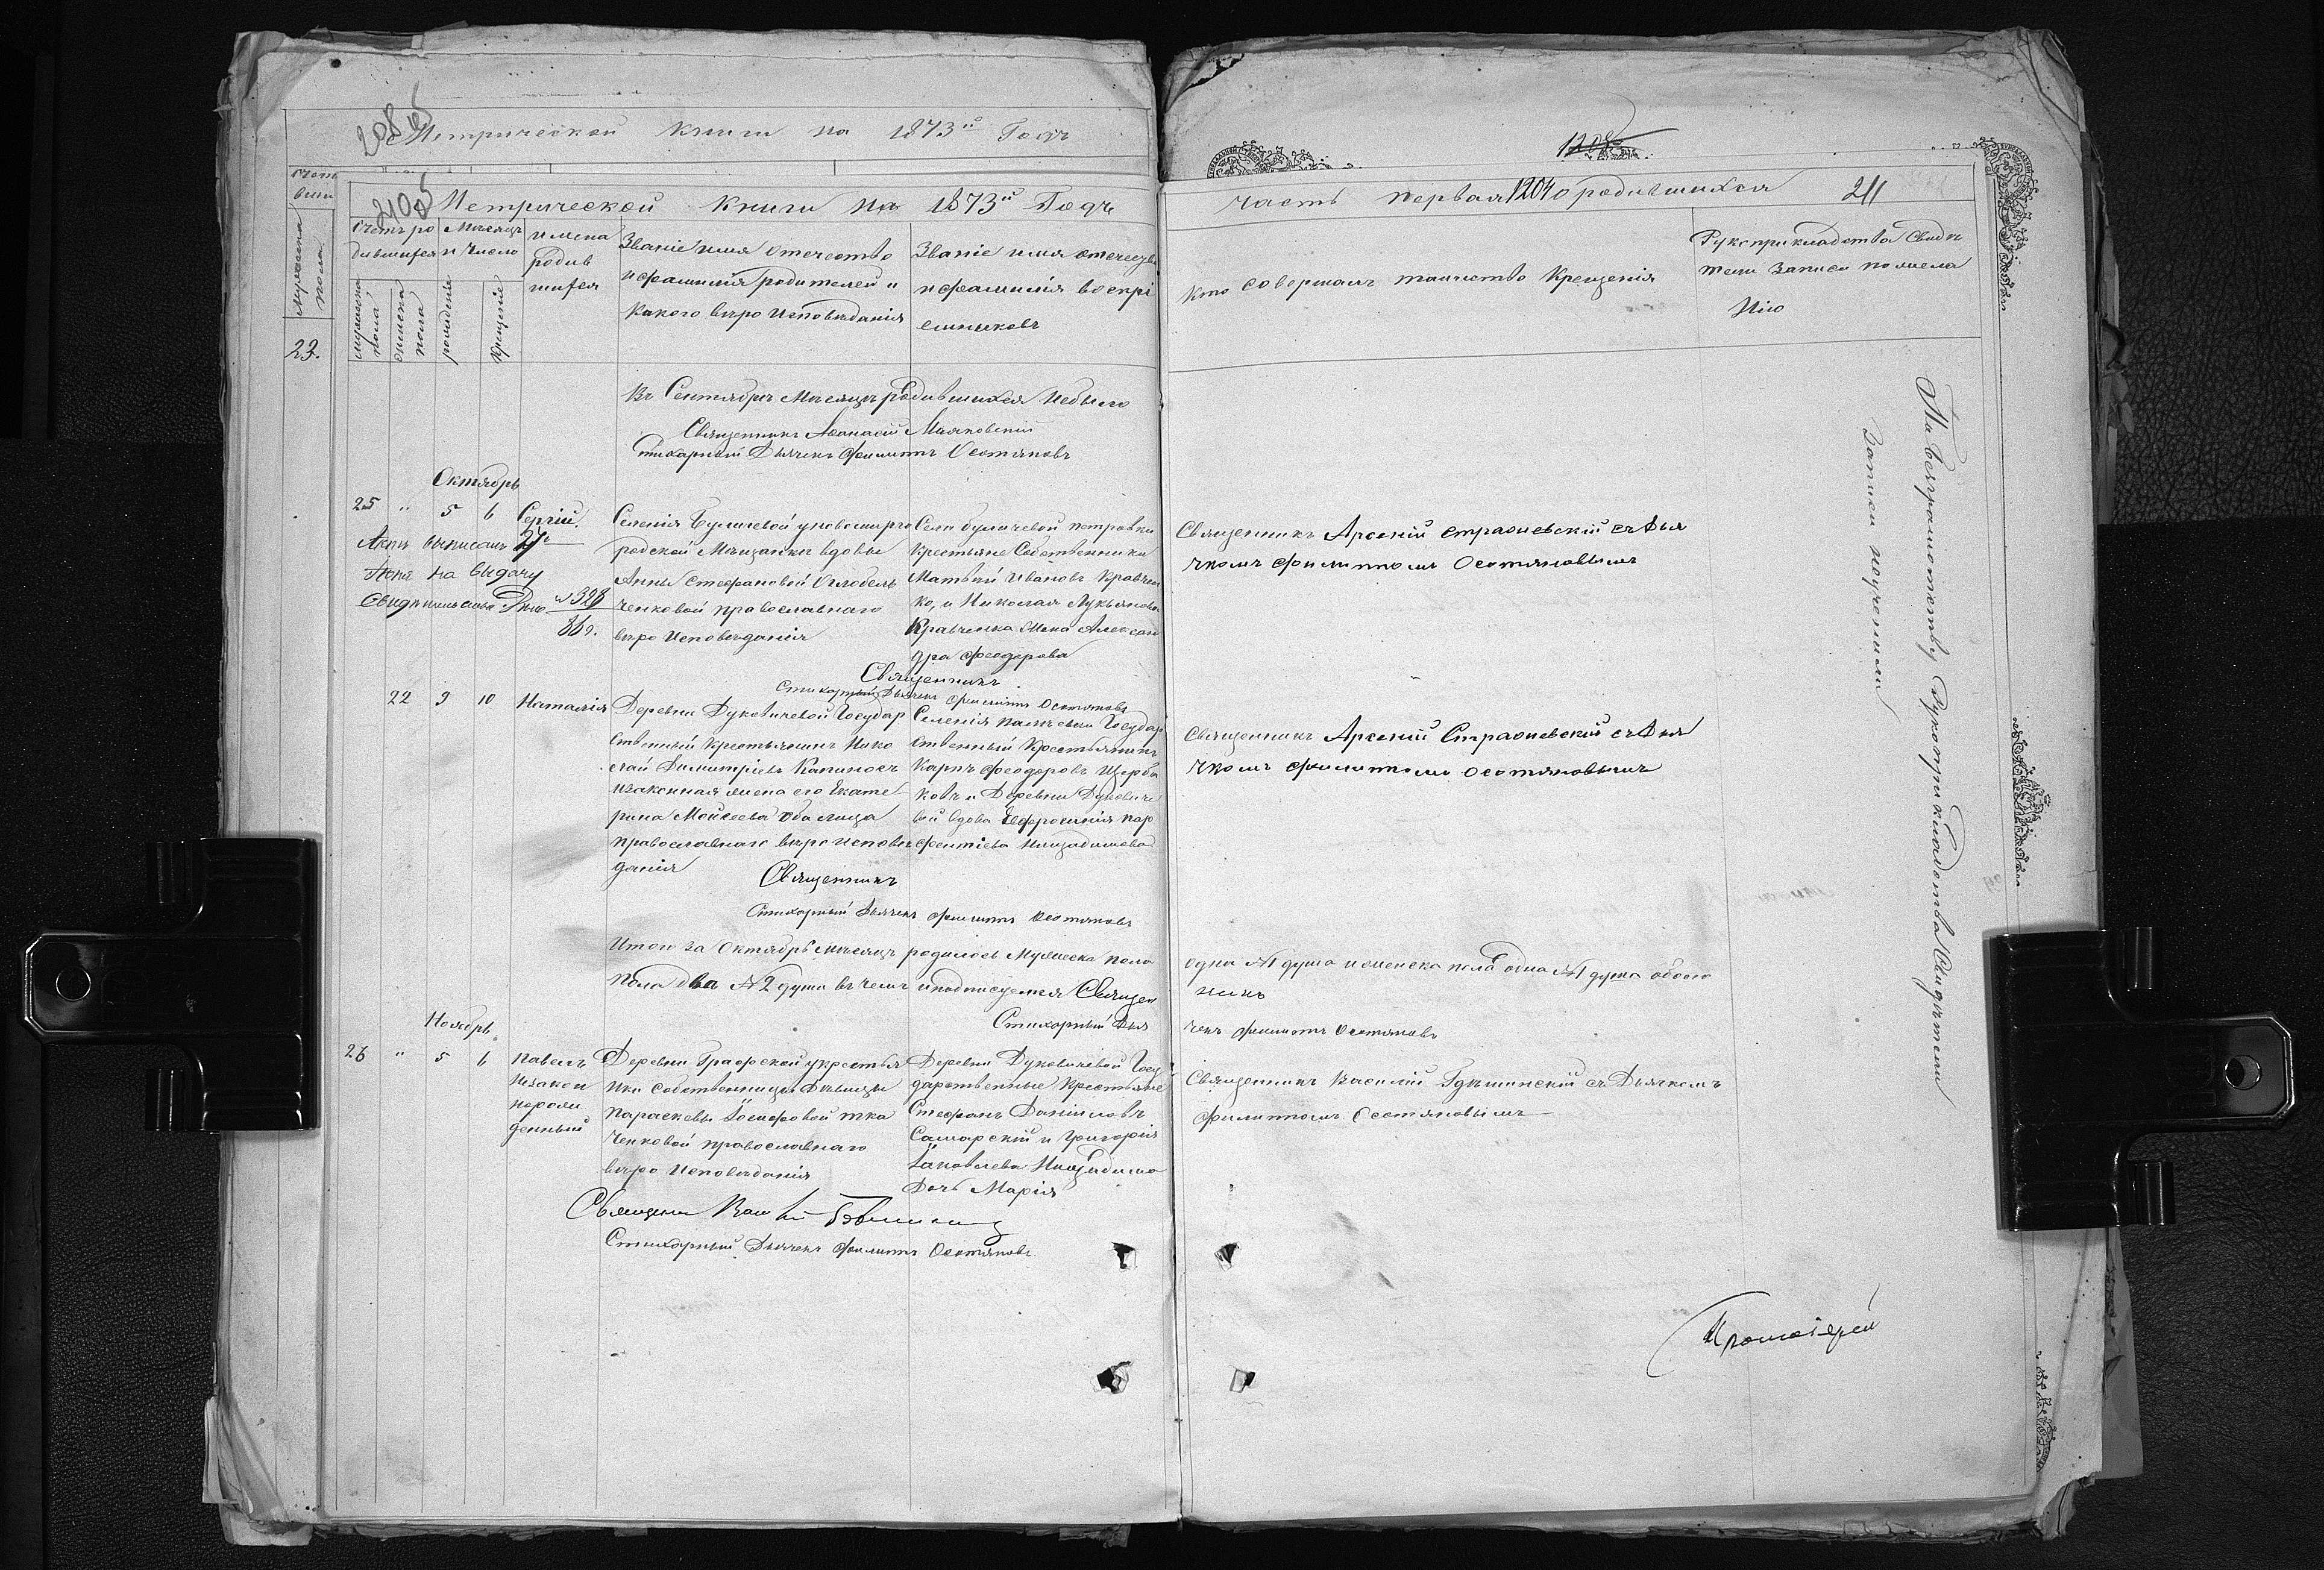 Метрической книги на 1873й Годъ
2105 Метрической книги на 1873й Годъ
Счетъ ро
дившихся
Мѣсяцъ
и число
мужеска
пола
женска
пола
рожденіе
Крещеніе
имена
родив
шихся
Званіе имя отечество
и фамилія родителей и
какого вѣро Исповѣданія
Званіе имя отечество
и фамилія воспрі
емниковъ
мужеска
пола
23.
Въ Сентябрѣ Мѣсяцѣ родившихся Небыло
Священникъ Аѳанасій Маяковскій
Стихарный Дьячекъ Филиппъ Остяновъ
Октябрь
25 " 5 6 Сергій.
Актъ выписанъ
на выдачу
№ 328
Селенія Булычевой у новомирго
родской Мѣщанки вдовы
Анны Стефановой
ченковой православнаго
вѣро Исповѣданія
Села булычевой петровки
крестьяне Собственники
Матвѣй Ивановъ Кравчен
ко, и Николая Лукьянова
Кравченка жена Алексан
дра Феодорова
Священникъ
Стихарный Дьячекъ Филиппъ Остяновъ
22 9 10 Наталія
Деревни Дуковичевой Государ
ственный крестьянинъ Нико
лай Димитріевъ Капиносъ
и законная жена его Екате
рина Моисеева оба лица
православнаго вѣро исповѣ
данія
Селенія Государ
ственный Крестьянинъ
Карпъ Феодоровъ Щерба
ковъ и Деревни Дукович
вой вдова Евфросинія пар
фентіева
Священникъ
Стихарный Дьячекъ Филиппъ Остяновъ
Итого за Октябрь мѣсяцъ родилось Мужеска пола
пола два №2 души въ чемъ и подписуемся Священ
Стихарный Дья
Ноябрь.
26 " 5 6 павелъ
Незакон
норож
денный
Деревни Графской у крестья
нки Собственницы Дѣвицы
параскевы Іосифовой тка
ченковой православнаго
вѣро Исповѣданія
Деревни Дуковичевой Госу
дарственные Крестьяне
Стефанъ Даніиловъ
Самарскій и Григорія
Іаковлева
Дочь Марія
Священникъ
Стихарный Дьячекъ Филиппъ Остяновъ
часть первая 1204 о родившихся 211
Кто совершалъ таинство Крещенія
Рукоприкладства Свидѣ
тели Записи по жела
нію
Священникъ Арсеній Страшевскій съ Дья
чкомъ Филиппомъ Остяновымъ
Священникъ Арсеній Страшевскій съ Дья
чкомъ Филиппомъ Остяновымъ
одна №1 душа и женска пола одна №1 душа обоего
никъ
чекъ Филиппъ Остяновъ
Священникъ Василій съ Дьячкомъ
Филиппомъ Остяновымъ
По безграмотству Рукоприкладства Свидѣтели
Записи неучинили
Протоіерей